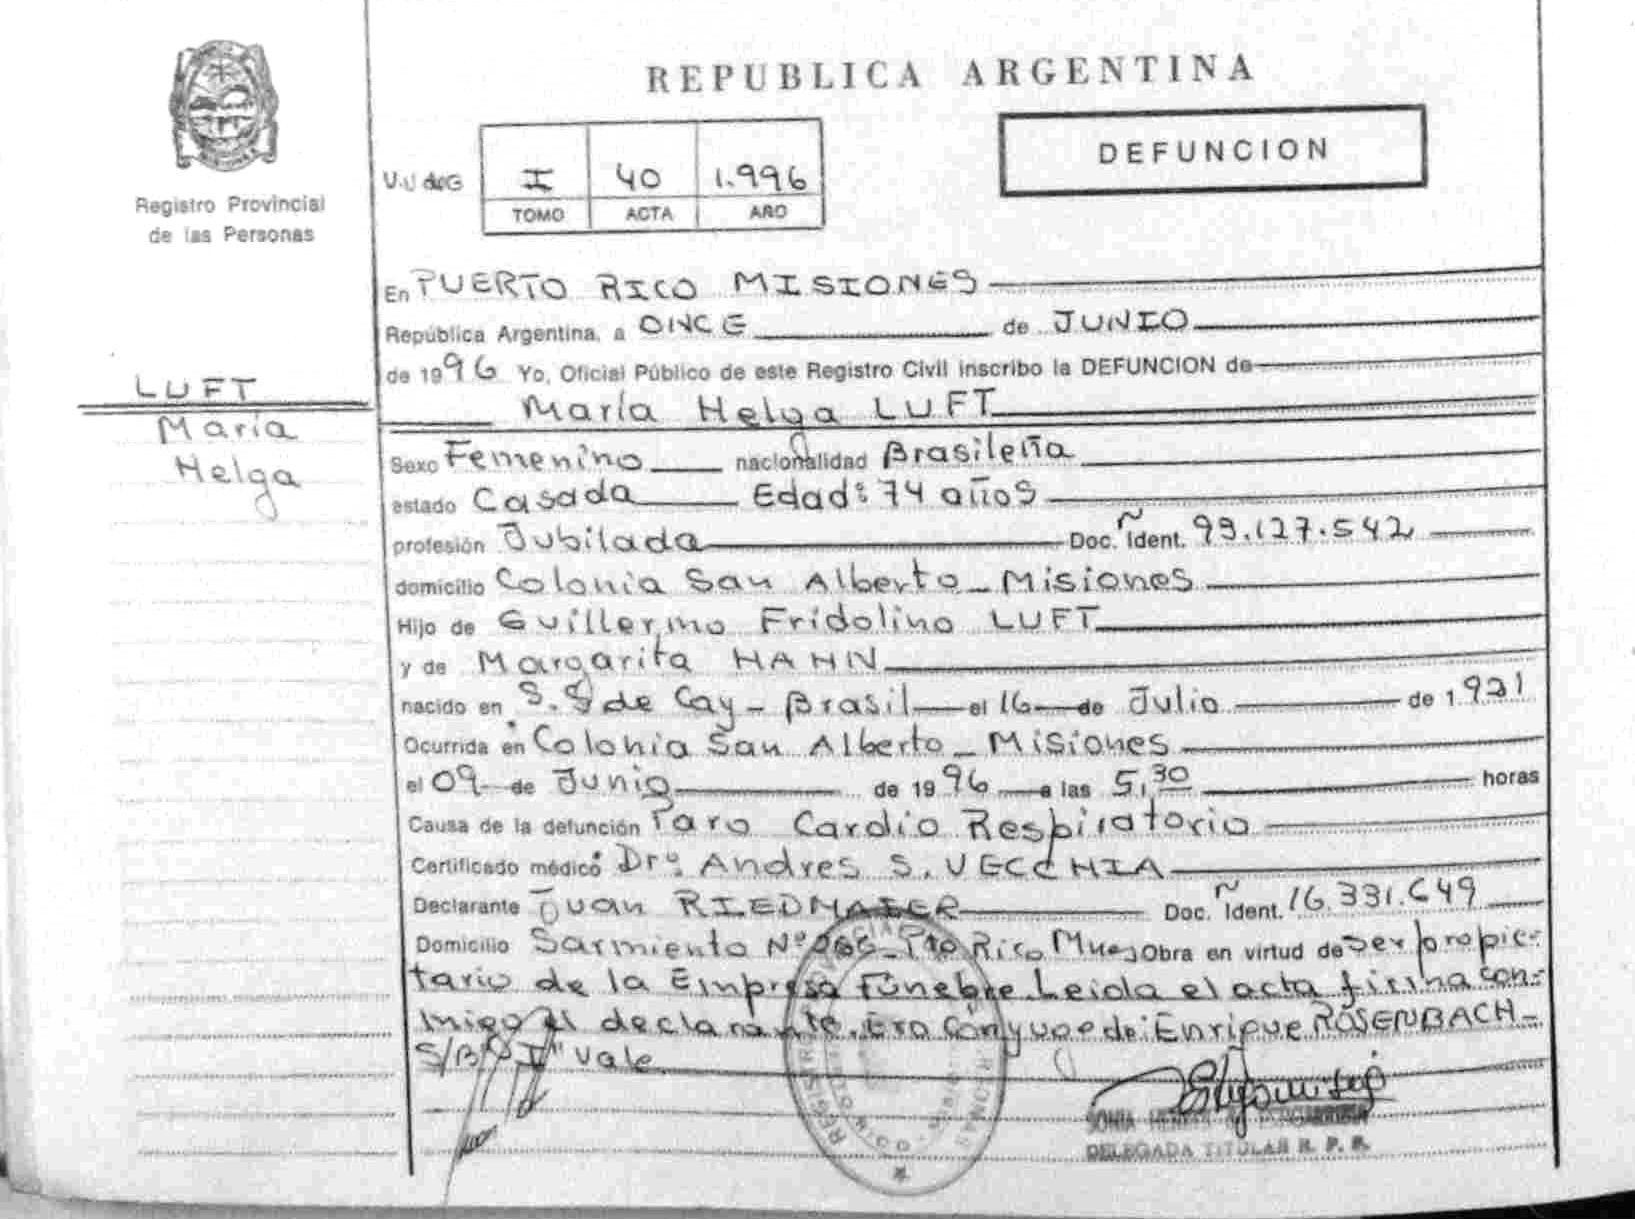 REPUBLICA ARGENTINA
DEFUNCION
I 40 1.996
TOMO ACTA AÑO
Registro Provincial
de las Personas
LUFT
María
Helga
En PUERTO RICO MISIONES
República Argentina, a ONCE de JUNIO
de 1996 Yo, Oficial Público de este Registro Civil inscribo la DEFUNCION de
María Helga LUFT
Sexo Femenino nacionalidad Brasileña
estado Casada Edad: 74 años
profesión Jubilada Doc. Ident. 93.127.542
domicilio Colonia San Alberto - Misiones
Hijo de Guillermo Fridolino LUFT
y de Margarita HAHN
nacido en S. S de Cay - Brasil el 16 de Julio de 1.921
Ocurrida en Colonia San Alberto - Misiones
el 09 de Junio de 1996 a las 5,30 horas
Causa de la defunción Paro Cardio Respiratorio
Certificado médico Dr: Andres S. VECCHIA
Declarante Juan RIEDMAIER Doc. Ident. 16.331.649
Domicilio Sarmiento Nº Pto Rico Mnes Obra en virtud de ser propie-
tario de la Empresa Fúnebre. Leida el acta firma con-
migo el declarante. Era Cónyuge de: Enrique ROSENBACH-
S/B "I" Vale
DELEGADA TITULAR R. P. P.